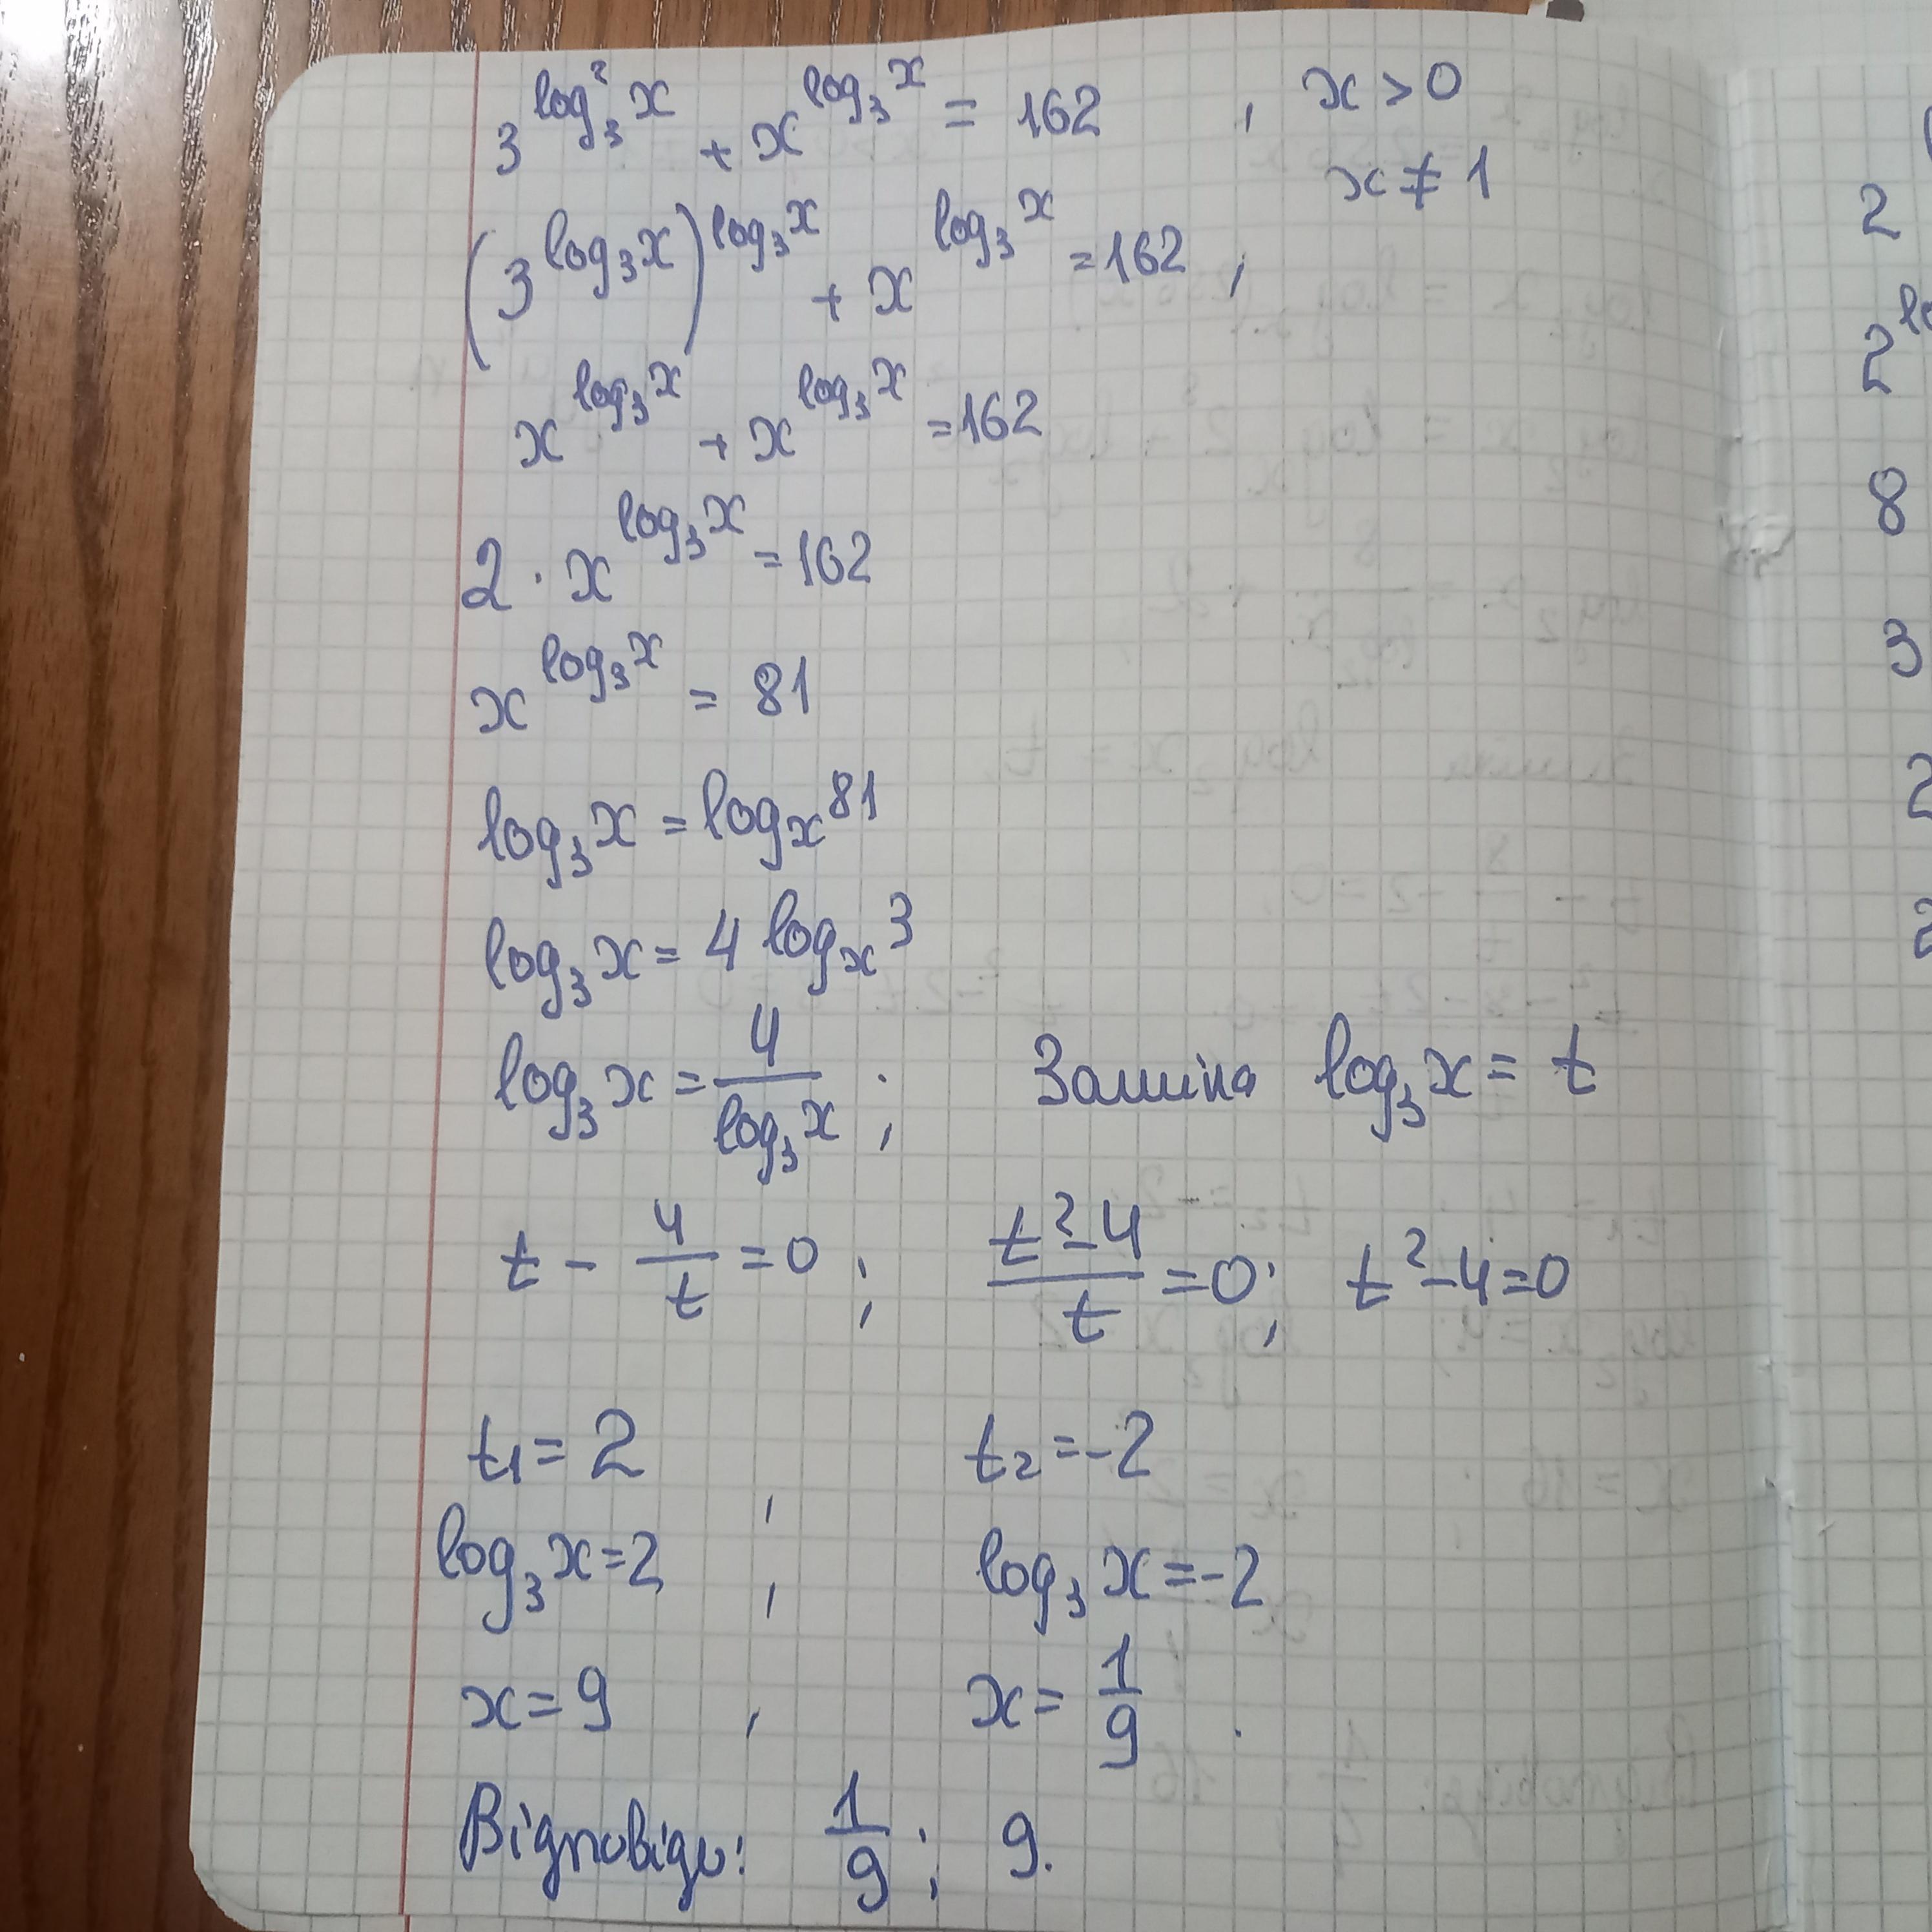 3^{log₃² x} + x^{log₃ x} = 162 , x > 0
x ≠ 1
(3^{log₃ x})^{log₃ x} + x^{log₃ x} = 162 ,
x^{log₃ x} + x^{log₃ x} = 162
2 · x^{log₃ x} = 162
x^{log₃ x} = 81
log₃ x = logₓ 81
log₃ x = 4 logₓ 3
log₃ x = 4/log₃ x ; Заміна log₃ x = t
t - 4/t = 0 ; (t² - 4)/t = 0 ; t² - 4 = 0
t₁ = 2 , t₂ = -2
log₃ x = 2 , log₃ x = -2
x = 9 , x = 1/9 .
Відповідь: 1/9 ; 9.
2
2
8
3
2
2